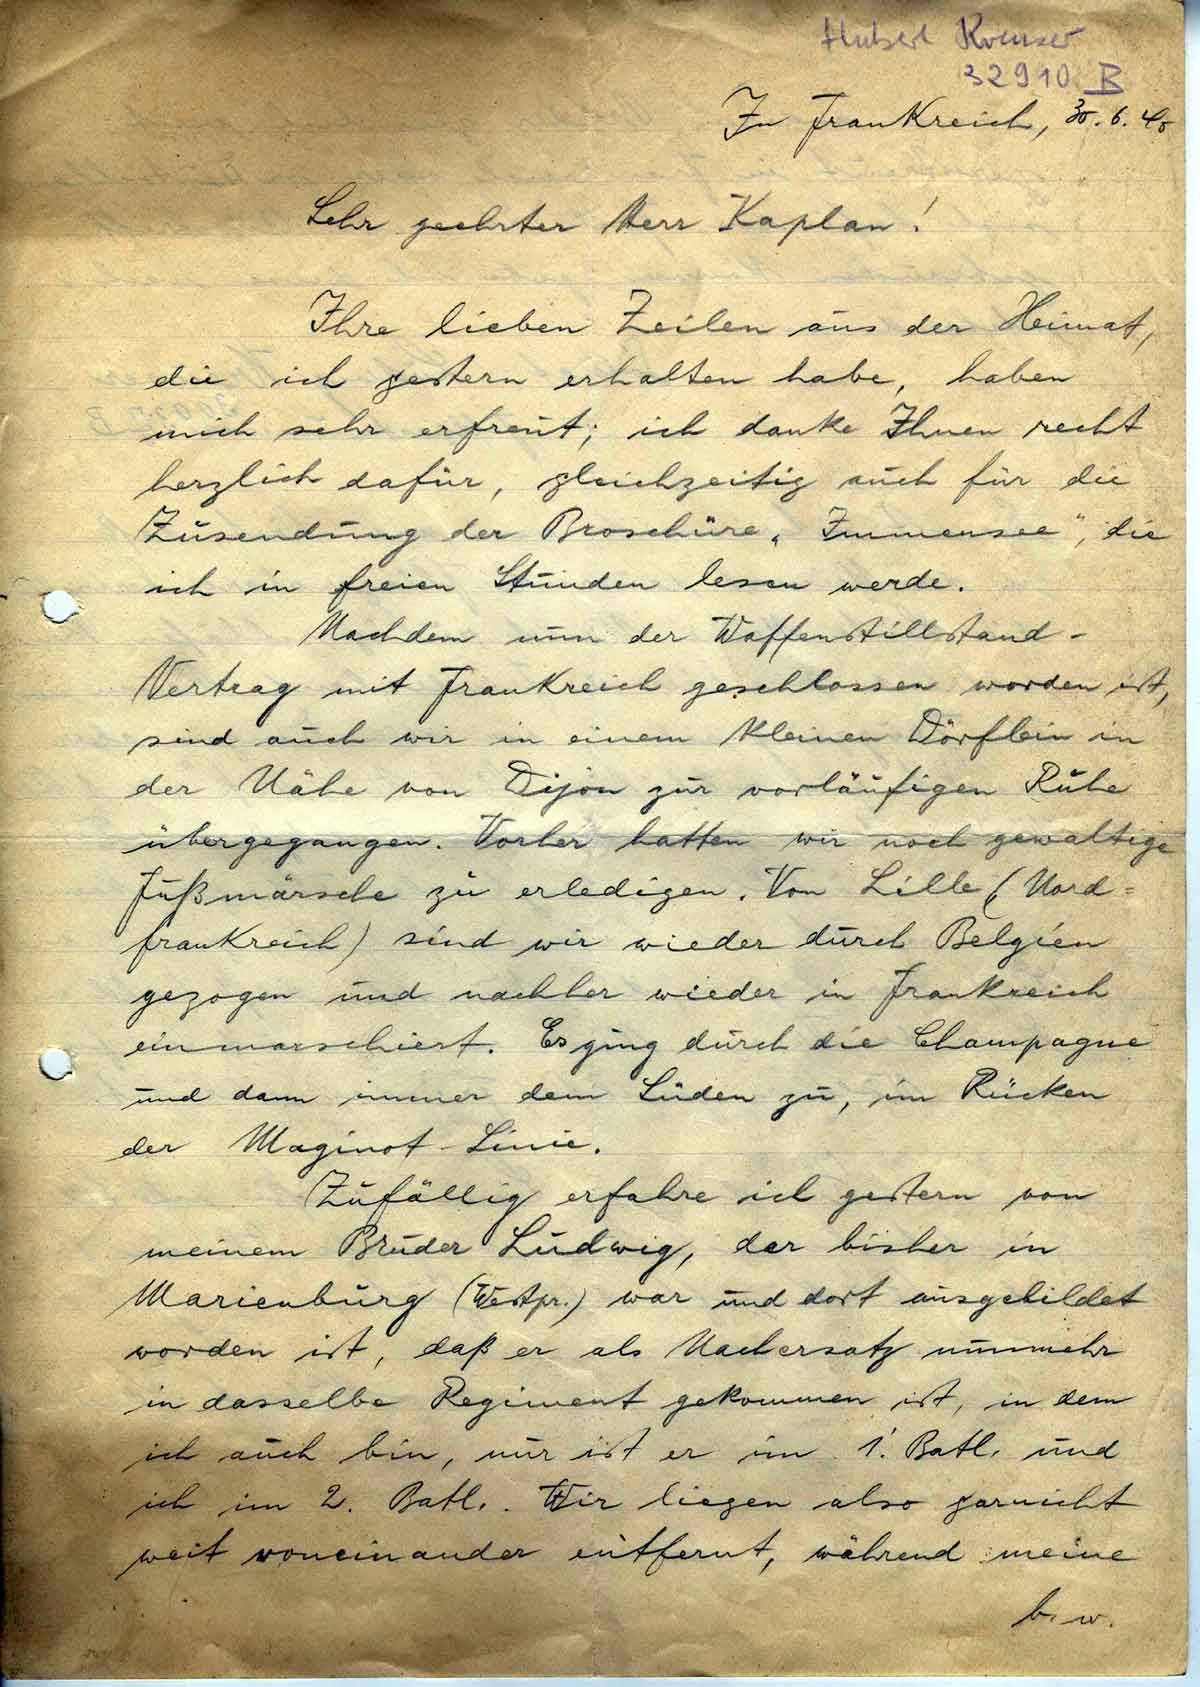 Hubert
32910 B
In Frankreich, 30.6.40
Sehr geehrter Herr Kaplan!
Ihre lieben Zeilen aus der Heimat,
die ich gestern erhalten habe, haben
mich sehr erfreut; ich danke Ihnen recht
herzlich dafür, gleichzeitig auch für die
Zusendung der Broschüre „Immensee", die
ich in freien Stunden lesen werde.
Nachdem nun der Waffenstillstand-
Vertrag mit Frankreich geschlossen worden ist,
sind auch wir in einem kleinen Dörflein in
der Nähe von Dijon zur vorläufigen Ruhe
übergegangen. Vorher hatten wir noch gewaltige
Fußmärsche zu erledigen. Von Lille (Nord=
frankreich) sind wir wieder durch Belgien
gezogen und nachher wieder in Frankreich
einmarschiert. Es ging durch die Champagne
und dann immer dem Süden zu, im Rücken
der Maginot-Linie.
Zufällig erfahre ich gestern von
meinem Bruder Ludwig, der bisher in
Marienburg (Westpr.) war und dort ausgebildet
worden ist, daß er als Nachersatz nunmehr
in dasselbe Regiment gekommen ist, in dem
ich auch bin, nur ist er im 1. Batl. und
ich im 2. Batl.. Wir liegen also garnicht
weit voneinander entfernt, während meine
b.w.